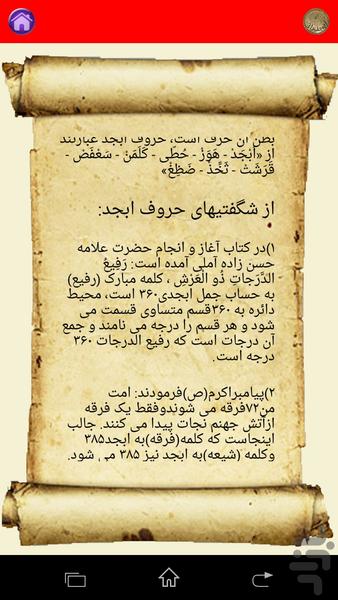 بطن آن حرف است، حروف ابجد عبارتند
از «أَبْجَدْ - هَوَزْ - حُطّی - کَلَمَنْ - سَعْفَصْ -
قَرَشَتْ - ثَخَّذْ - ضَظِغْ»
از شگفتیهای حروف ابجد:
۱)در کتاب آغاز و انجام حضرت علامه
حسن زاده آملی آمده است: رَفِیعُ
الدَّرَجاتِ ذُو الْعَرْشِ ، کلمه مبارک (رفیع)
به حساب جمل ابجدی۳۶۰ است، محیط
دائره به ۳۶۰قسم متساوی قسمت می
شود و هر قسم را درجه می نامند و جمع
آن درجات است که رفیع الدرجات ۳۶۰
درجه است.
۲)پیامبراکرم(ص)فرمودند: امت
من۷۲فرقه می شوندوفقط یک فرقه
ازآتش جهنم نجات پیدا می کنند. جالب
اینجاست که کلمه(فرقه)به ابجد۳۸۵
وکلمه (شیعه)به ابجد نیز ۳۸۵ می شود.